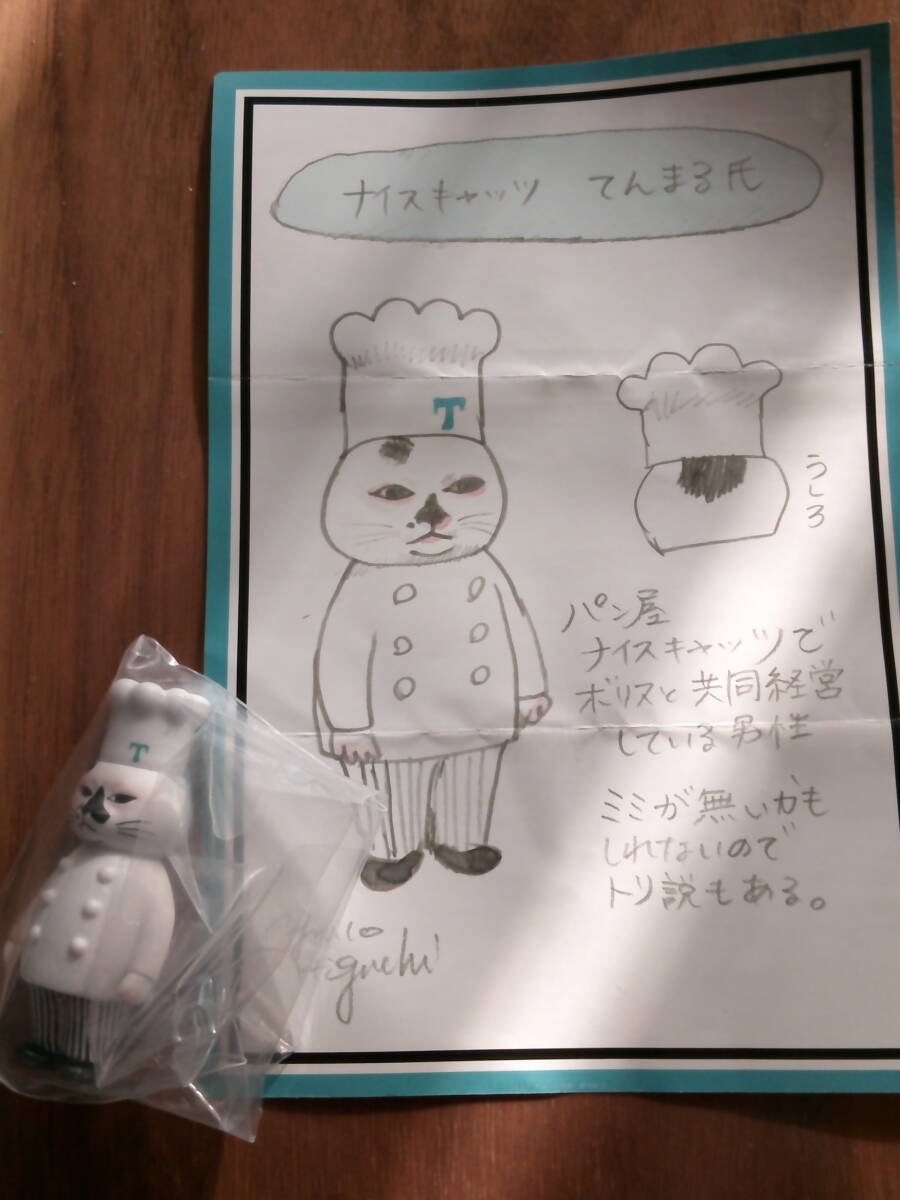 ナイスキャッツ てんまる氏
T
うしろ
パン屋
ナイスキャッツで
ボリスと共同経営
している男性
ミミが無いかも
しれないので
トリ説もある。
Higuchi
T